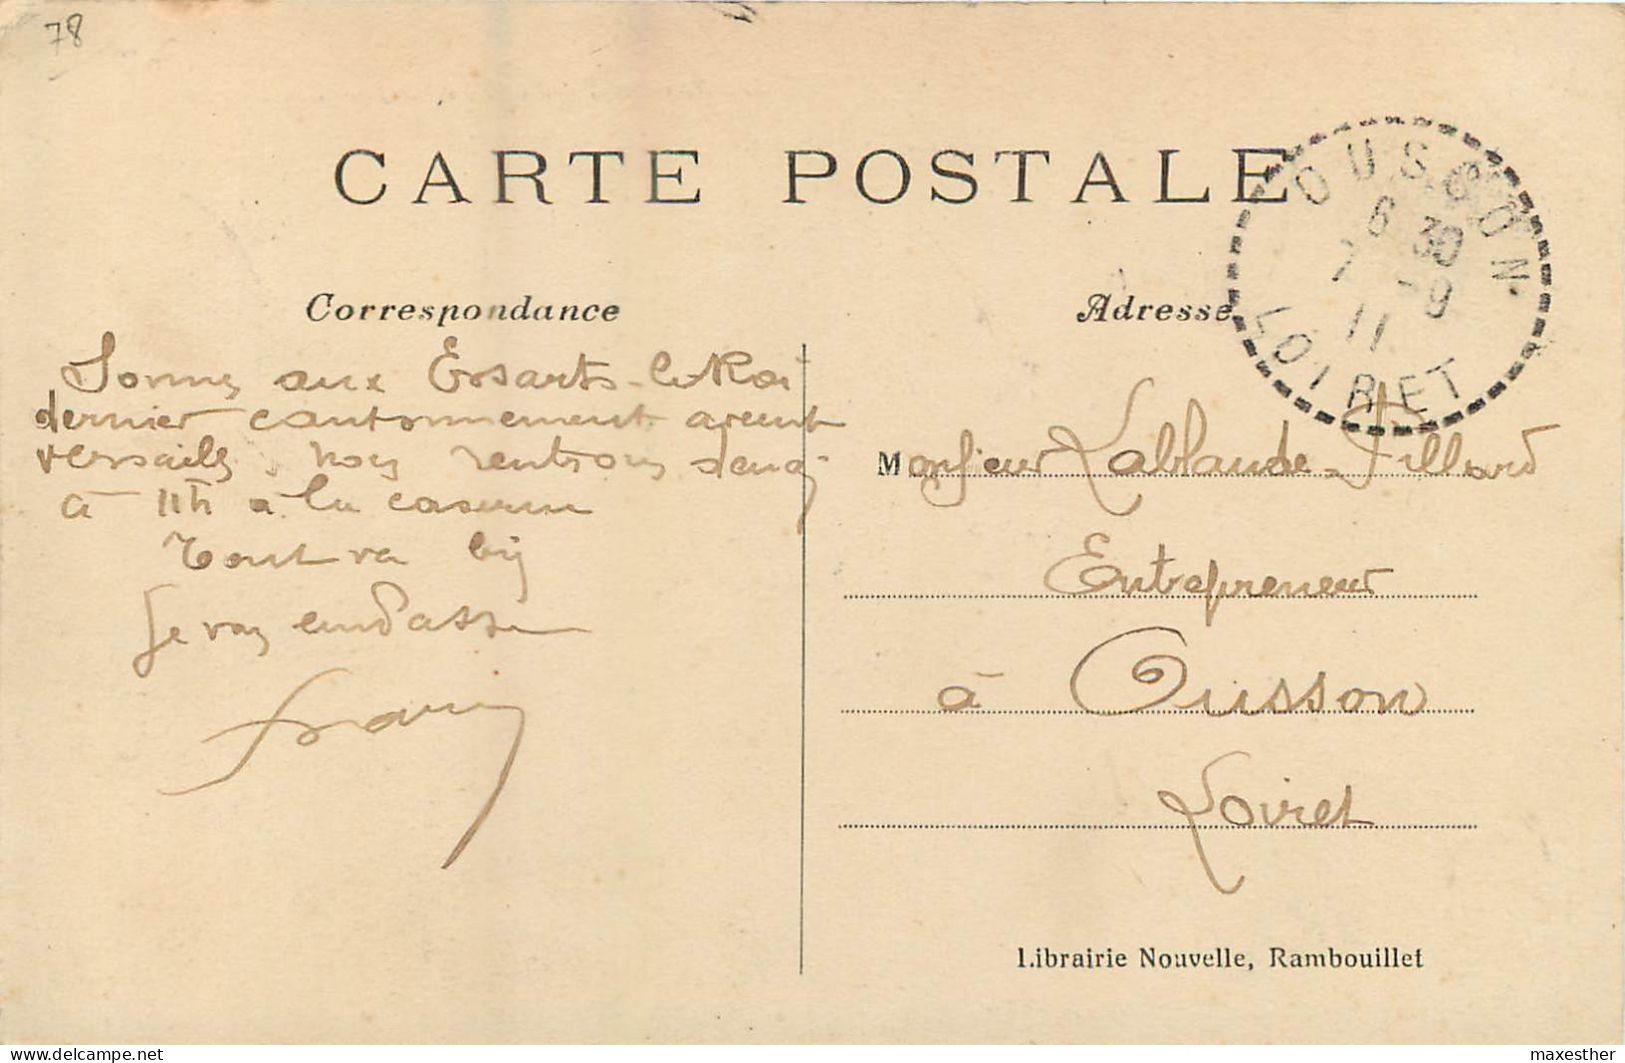 78
CARTE POSTALE
OUSSON.
6 30
7 -9
11
LOIRET
Correspondance
Adresse
Sommes aux Essarts-le-Roi
dernier cantonnement avant
Versailles. Nous rentrons
à 11h à la caserne
Tout va bien
Je vous embrasse
Monsieur Lablaude-Pillard
Entrepreneur
à Ousson
Loiret
Librairie Nouvelle, Rambouillet
www.delcampe.net
maxesther